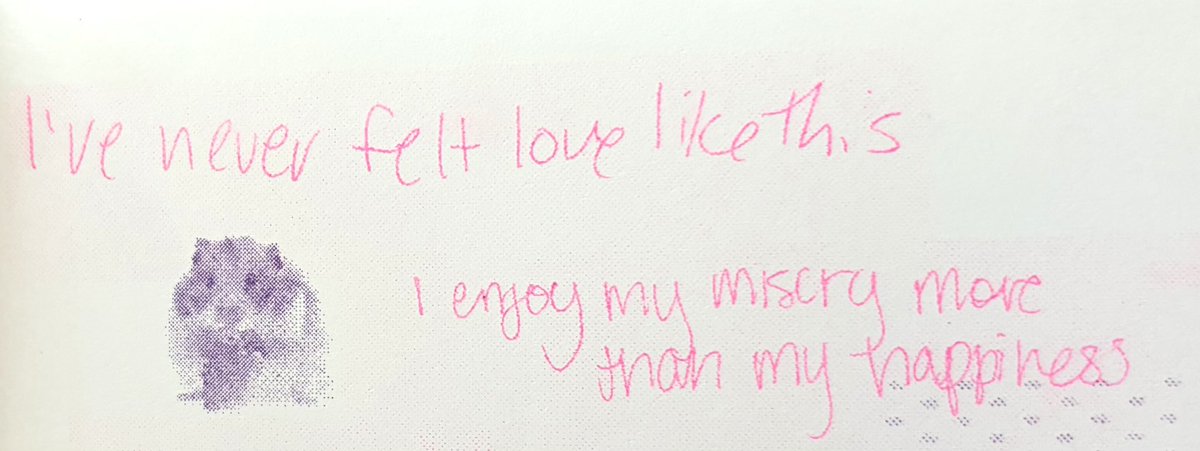 I've never felt love like this
I enjoy my misery more
than my happiness